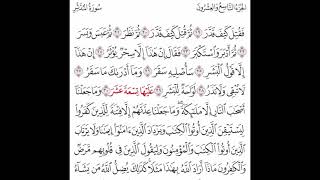 الجزء التاسع والعشرون سورة المدثر
فَقُتِلَ كَيْفَ قَدَّرَ ۝ ثُمَّ قُتِلَ كَيْفَ قَدَّرَ ۝ ثُمَّ نَظَرَ ۝ ثُمَّ عَبَسَ وَبَسَرَ
۝ ثُمَّ أَدْبَرَ وَٱسْتَكْبَرَ ۝ فَقَالَ إِنْ هَٰذَآ إِلَّا سِحْرٌ يُؤْثَرُ ۝ إِنْ هَٰذَآ
إِلَّا قَوْلُ ٱلْبَشَرِ ۝ سَأُصْلِيهِ سَقَرَ ۝ وَمَآ أَدْرَىٰكَ مَا سَقَرُ ۝ لَا تُبْقِى وَلَا تَذَرُ
۝ لَوَّاحَةٌ لِّلْبَشَرِ ۝ عَلَيْهَا تِسْعَةَ عَشَرَ ۝ وَمَا جَعَلْنَآ
أَصْحَٰبَ ٱلنَّارِ إِلَّا مَلَٰٓئِكَةً وَمَا جَعَلْنَا عِدَّتَهُمْ إِلَّا فِتْنَةً لِّلَّذِينَ كَفَرُوا۟
لِيَسْتَيْقِنَ ٱلَّذِينَ أُوتُوا۟ ٱلْكِتَٰبَ وَيَزْدَادَ ٱلَّذِينَ ءَامَنُوٓا۟ إِيمَٰنًا وَلَا يَرْتَابَ
ٱلَّذِينَ أُوتُوا۟ ٱلْكِتَٰبَ وَٱلْمُؤْمِنُونَ وَلِيَقُولَ ٱلَّذِينَ فِى قُلُوبِهِم مَّرَضٌ
وَٱلْكَٰفِرُونَ مَاذَآ أَرَادَ ٱللَّهُ بِهَٰذَا مَثَلًا كَذَٰلِكَ يُضِلُّ ٱللَّهُ مَن يَشَآءُ